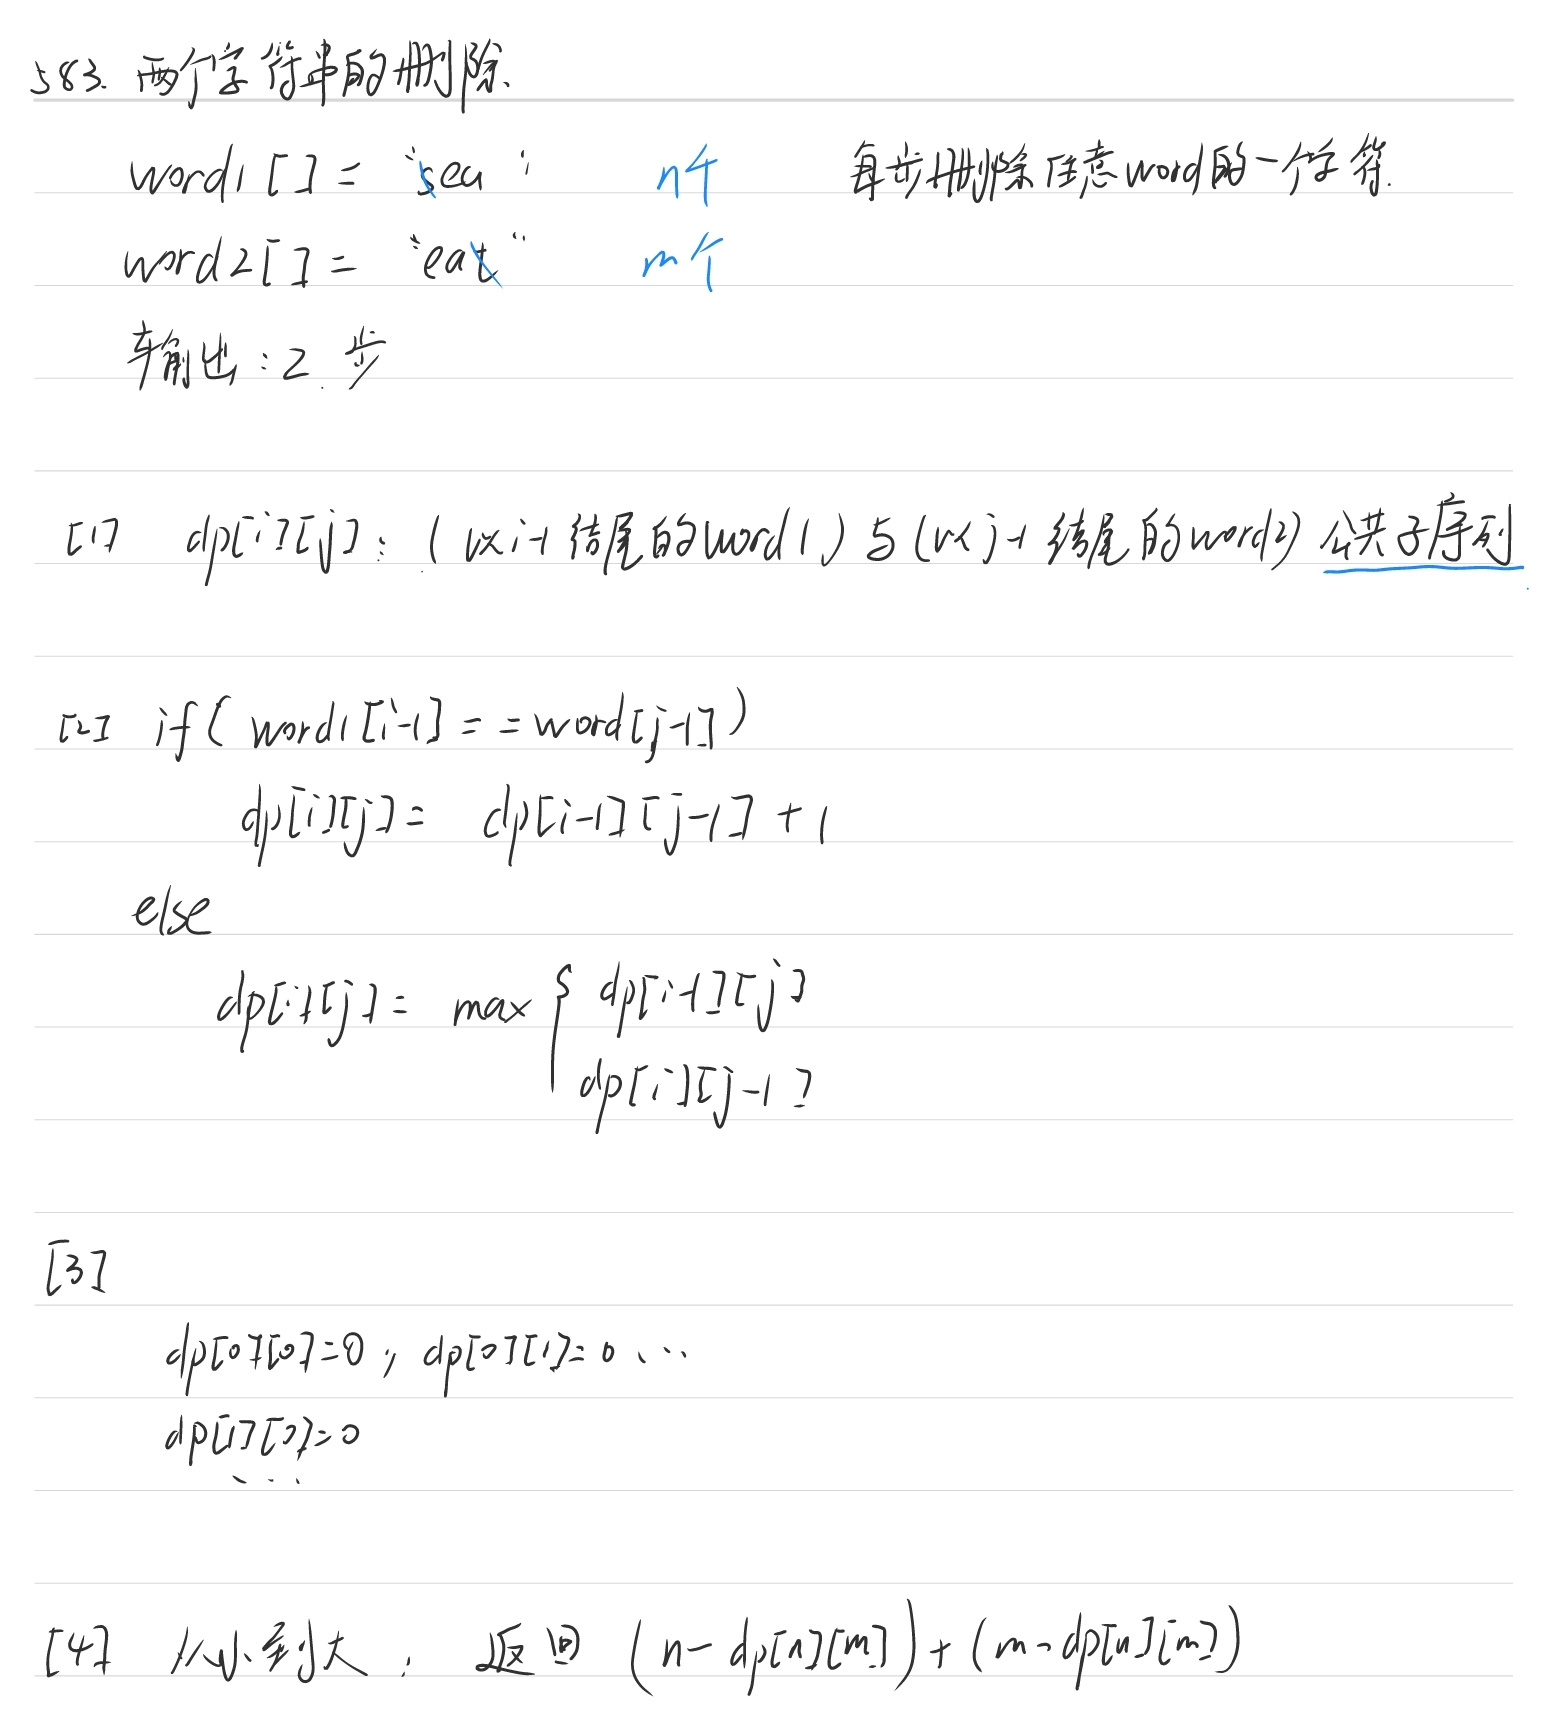 583. 两个字符串的删除.
word1 [] = "sea" n个 每步删除任意word的一个字符.
word2 [] = "eat" m个
输出:2.步
[1] dp[i][j]: (以i-1结尾的word1)与(以j-1结尾的word2)公共子序列
[2] if( word1[i-1] == word[j-1])
dp[i][j] = dp[i-1][j-1] + 1
else
dp[i][j] = max { dp[i-1][j]
dp[i][j-1]
[3]
dp[0][0]=0 ; dp[0][1]=0 ...
dp[1][0]=0
...
[4] 从小到大, 返回 (n - dp[n][m]) + (m - dp[n][m])